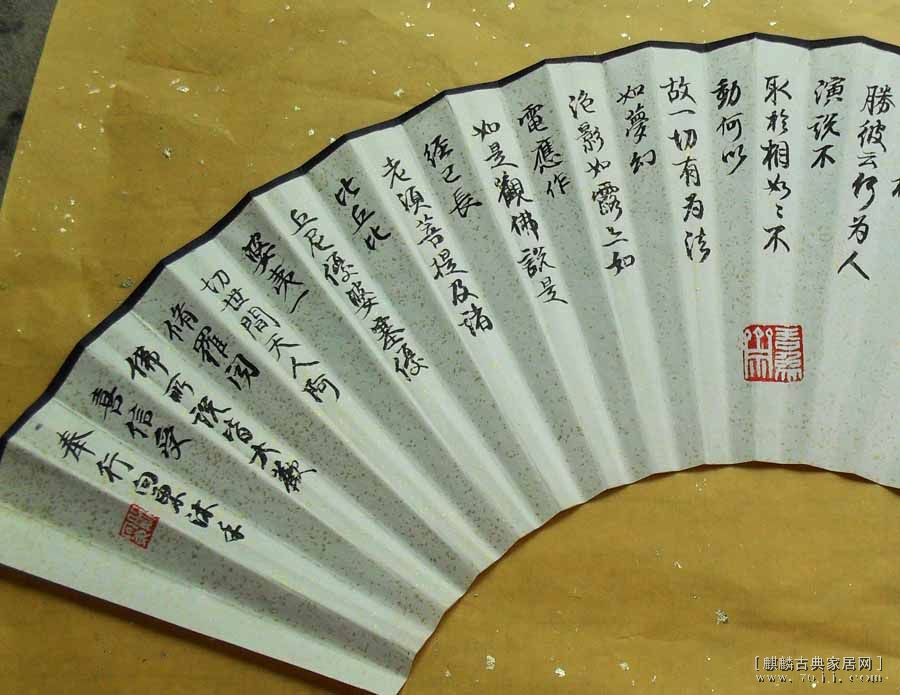 勝彼云何為人
演説不
取於相如〻不
動何以
故一切有為法
如夢幻
泡影如露亦如
電應作
如是觀佛說是
経已長
老須菩提及诸
比丘比
丘尼優婆塞優
婆夷一
切世間天人阿
脩羅闻
佛所說皆大歡
喜信受
奉行向東沐手
[麒麟古典家居网]
www.7qjj.com